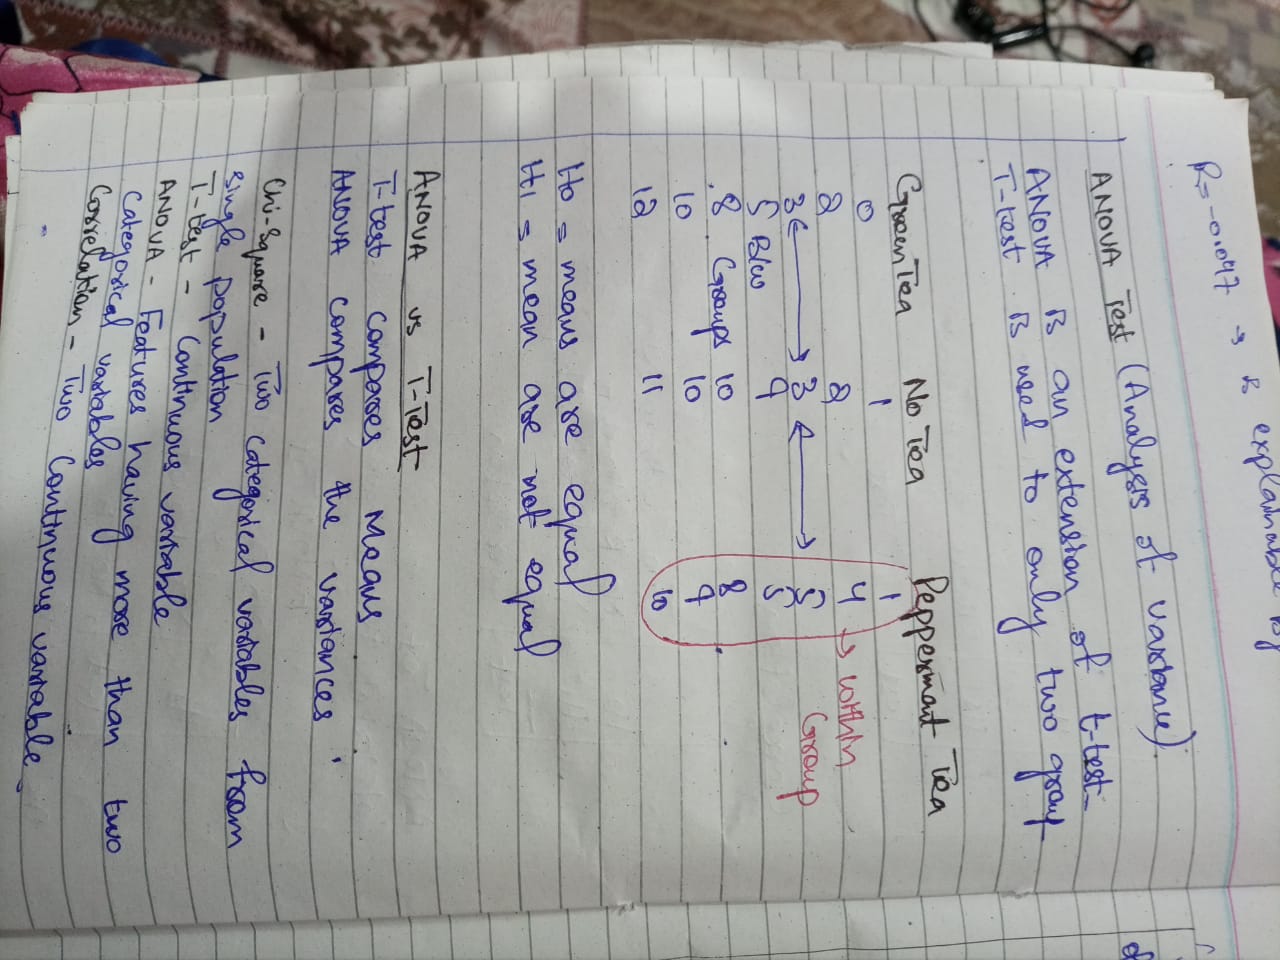 R=-0.047 → is explainable by
ANOVA Test (Analysis of variance).
ANOVA is an extension of t-test
T-test is used to only two group
Green Tea No Tea Peppermant Tea
0 1 1
2 2 4 → within
3 ↔ 3 ↔ 5 Group
5 Blw 9 5
8 Groups 10 8
10 10 9
12 11 10
H0 = means are equal
H1 = mean are not equal
ANOVA vs T-Test
T-test compares Means
ANOVA compares the variances
Chi-Square - Two categorical variables from
single population
T-test - Continuous variable
ANOVA - Features having more than two
categorical variables
Correlation - Two Continuous variable.